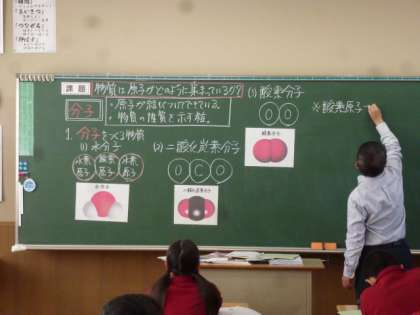 課題
物質は原子がどのように集まっているか?
分子
・原子が結びついてできている。
・物質の性質を示す粒。
1. 分子をつくる物質
(1) 水分子
水素原子
酸素原子
水素原子
水分子
(2) 二酸化炭素分子
O C O
二酸化炭素分子
(3) 酸素分子
O O
酸素分子
※酸素原子